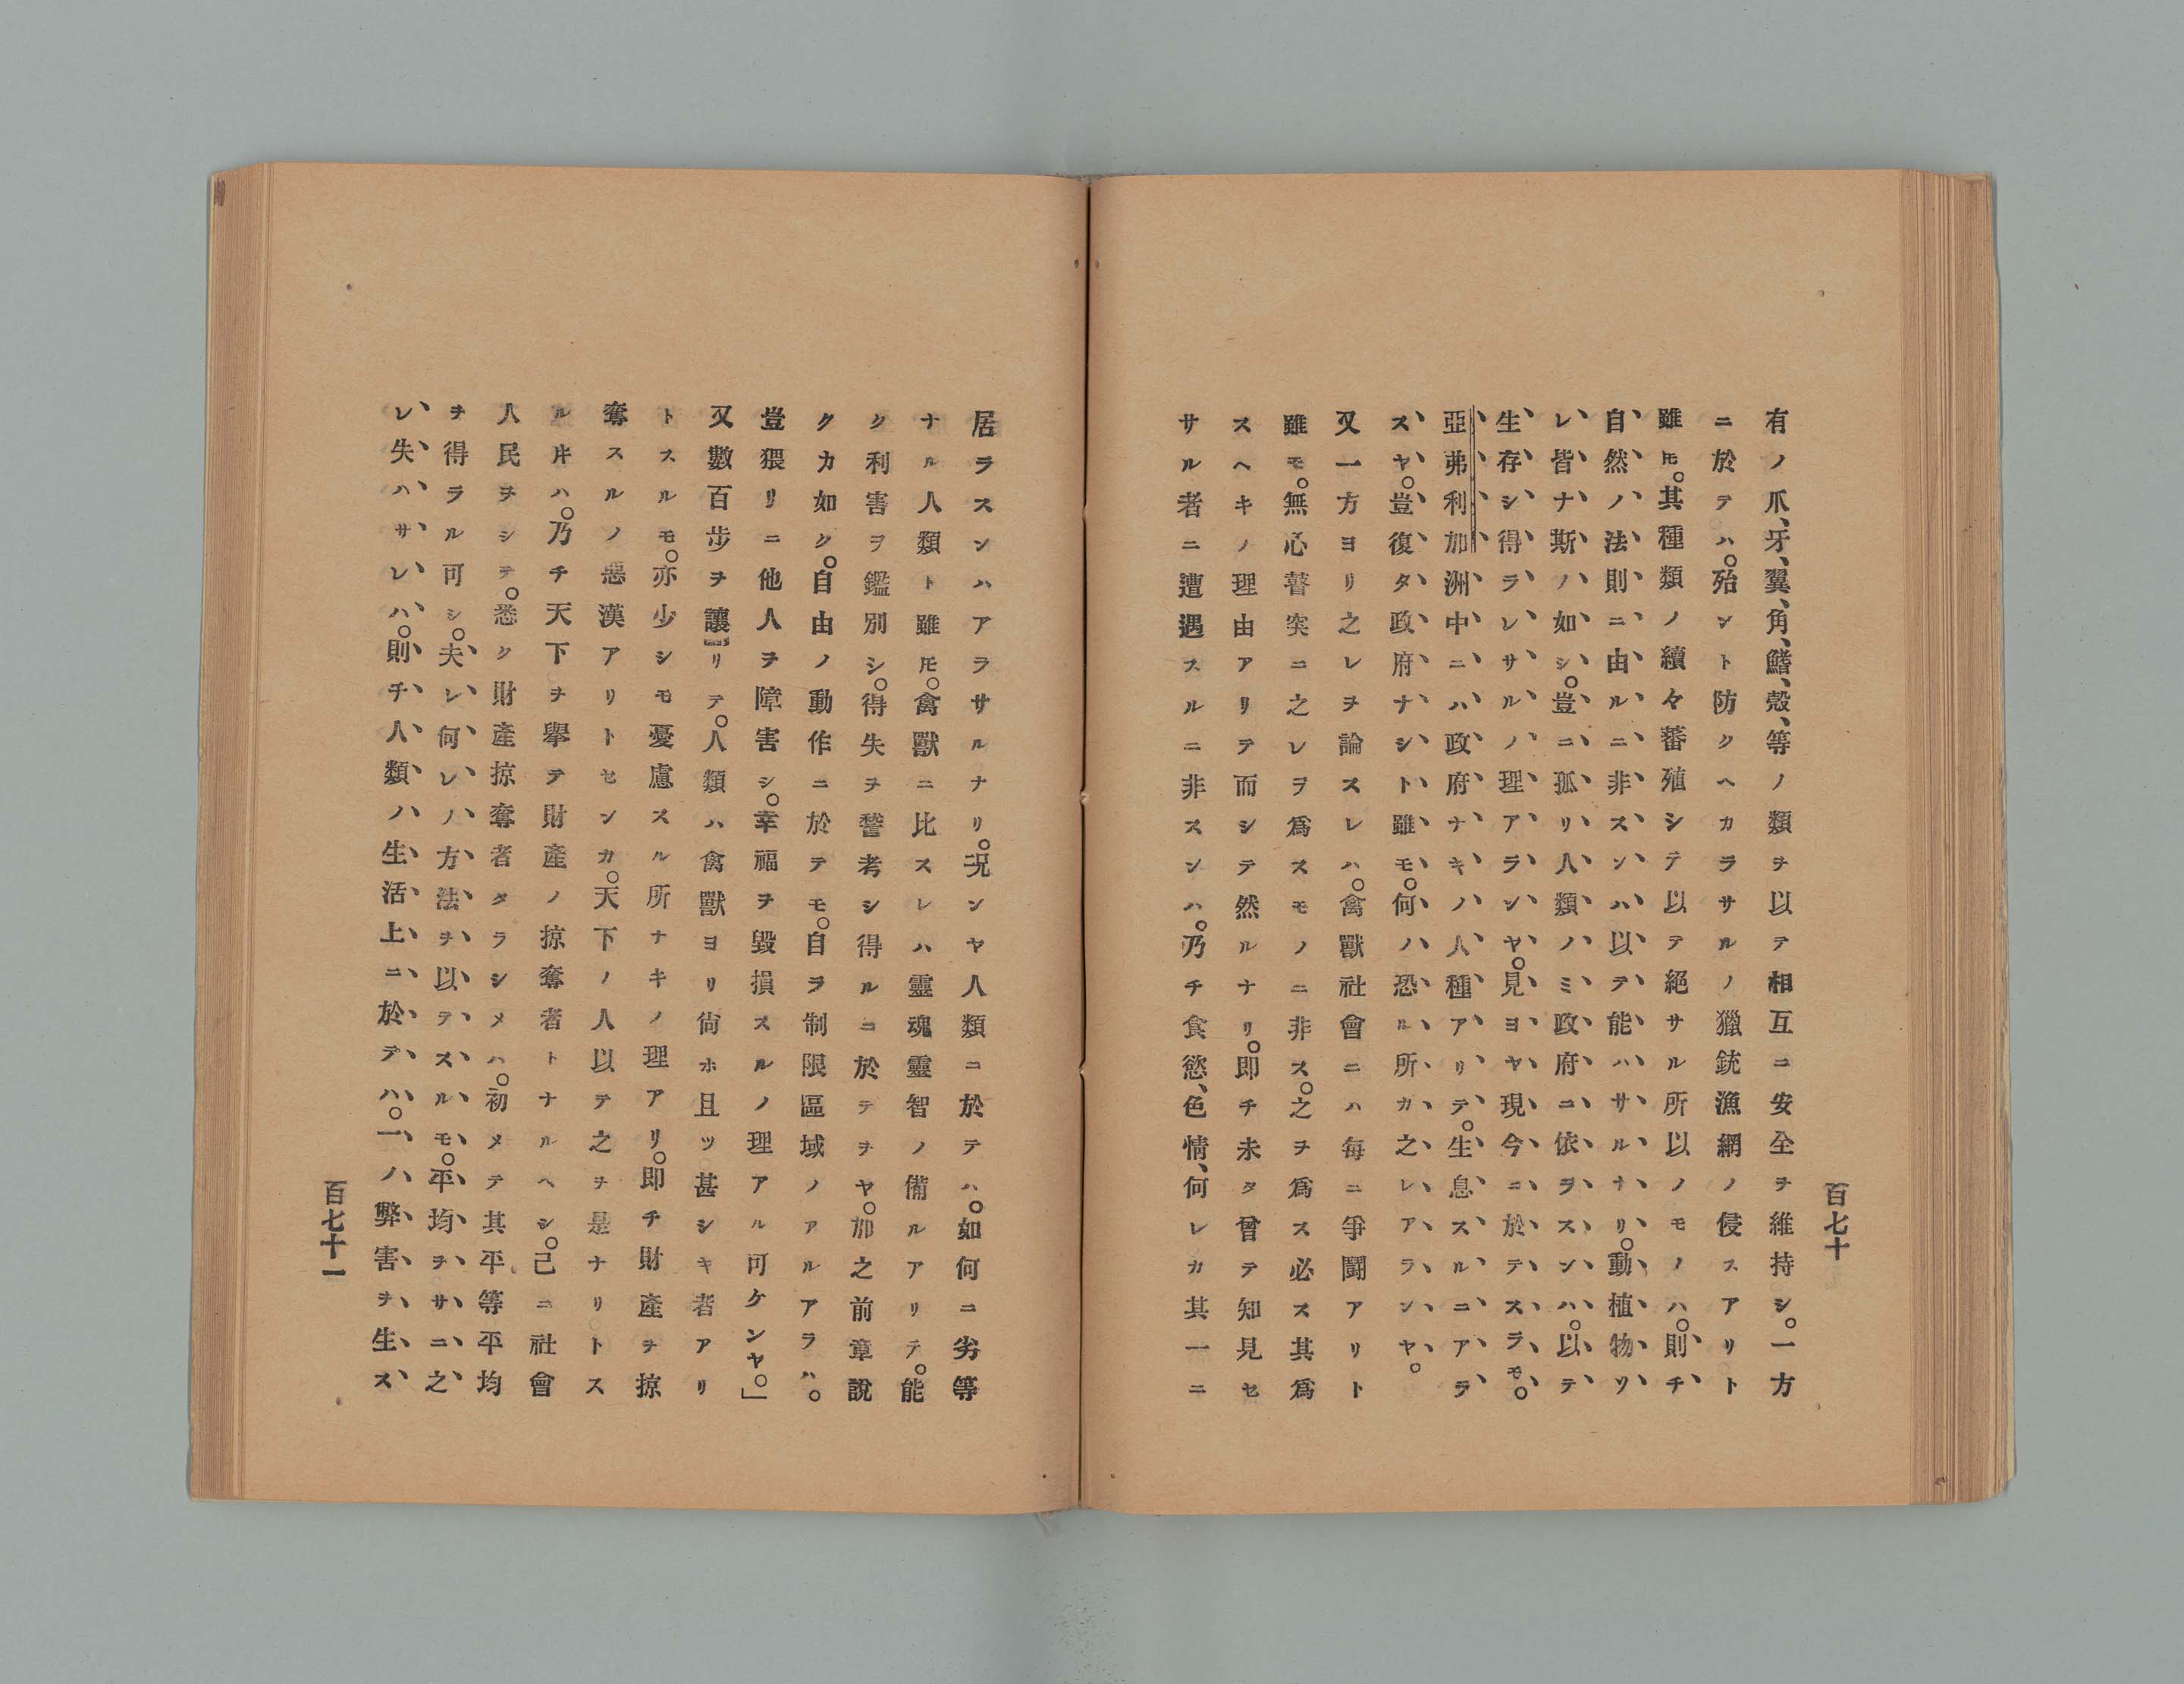 百七十
有ノ爪、牙、翼、角、鰭、殼、等ノ類ヲ以テ相互ニ安全ヲ維持シ。一方
ニ於テハ。殆ント防クヘカラサルノ獵銃漁網ノ侵スアリト
雖𪜈。其種類ノ續々蕃殖シテ以テ絕サル所以ノモノハ。則チ
自然ノ法則ニ由ルニ非スンハ以テ能ハサルナリ。動植物ソ
レ皆ナ斯ノ如シ。豈ニ孤リ人類ノミ政府ニ依ヲスンハ。以テ
生存シ得ラレサルノ理アランヤ。見ヨヤ現今ニ於テスラモ。
亞弗利加洲中ニハ政府ナキノ人種アリテ。生息スルニアラ
スヤ。豈復タ政府ナシト雖モ。何ノ恐ル所カ之レアランヤ。
又一方ヨリ之レヲ論スレハ。禽獸社會ニハ每ニ爭鬪アリト
雖モ。無心瞽突ニ之レヲ爲スモノニ非ス。之ヲ爲ス必ス其爲
スヘキノ理由アリテ而シテ然ルナリ。即チ未タ曾テ知見セ
サル者ニ遭遇スルニ非スンハ。乃チ食慾、色情、何レカ其一ニ
居ラスンハアラサルナリ。况ンヤ人類ニ於テハ。如何ニ劣等
ナル人類ト雖𪜈。禽獸ニ比スレハ靈魂靈智ノ備ルアリテ。能
ク利害ヲ鑑別シ。得失ヲ謷考シ得ルニ於テヲヤ。加之前章說
クカ如ク。自由ノ動作ニ於テモ。自ヲ制限區域ノアルアラハ。
豈猥リニ他人ヲ障害シ。幸福ヲ毀損スルノ理アル可ケンヤ。」
又數百步ヲ讓リテ。人類ハ禽獸ヨリ尙ホ且ツ甚シキ者アリ
トスルモ。亦少シモ憂慮スル所ナキノ理アリ。即チ財產ヲ掠
奪スルノ惡漢アリトセンカ。天下ノ人以テ之ヲ是ナリトス
ル片ハ。乃チ天下ヲ擧テ財產ノ掠奪者トナルヘシ。己ニ社會
人民ヲシテ。悉ク財產掠奪者タラシメハ。初メテ其平等平均
ヲ得ラル可シ。夫レ何レノ方法ヲ以テスルモ。平均ヲサニ之
レ失ハサレハ。則チ人類ハ生活上ニ於テハ。一ハ弊害ヲ生ス
百七十一